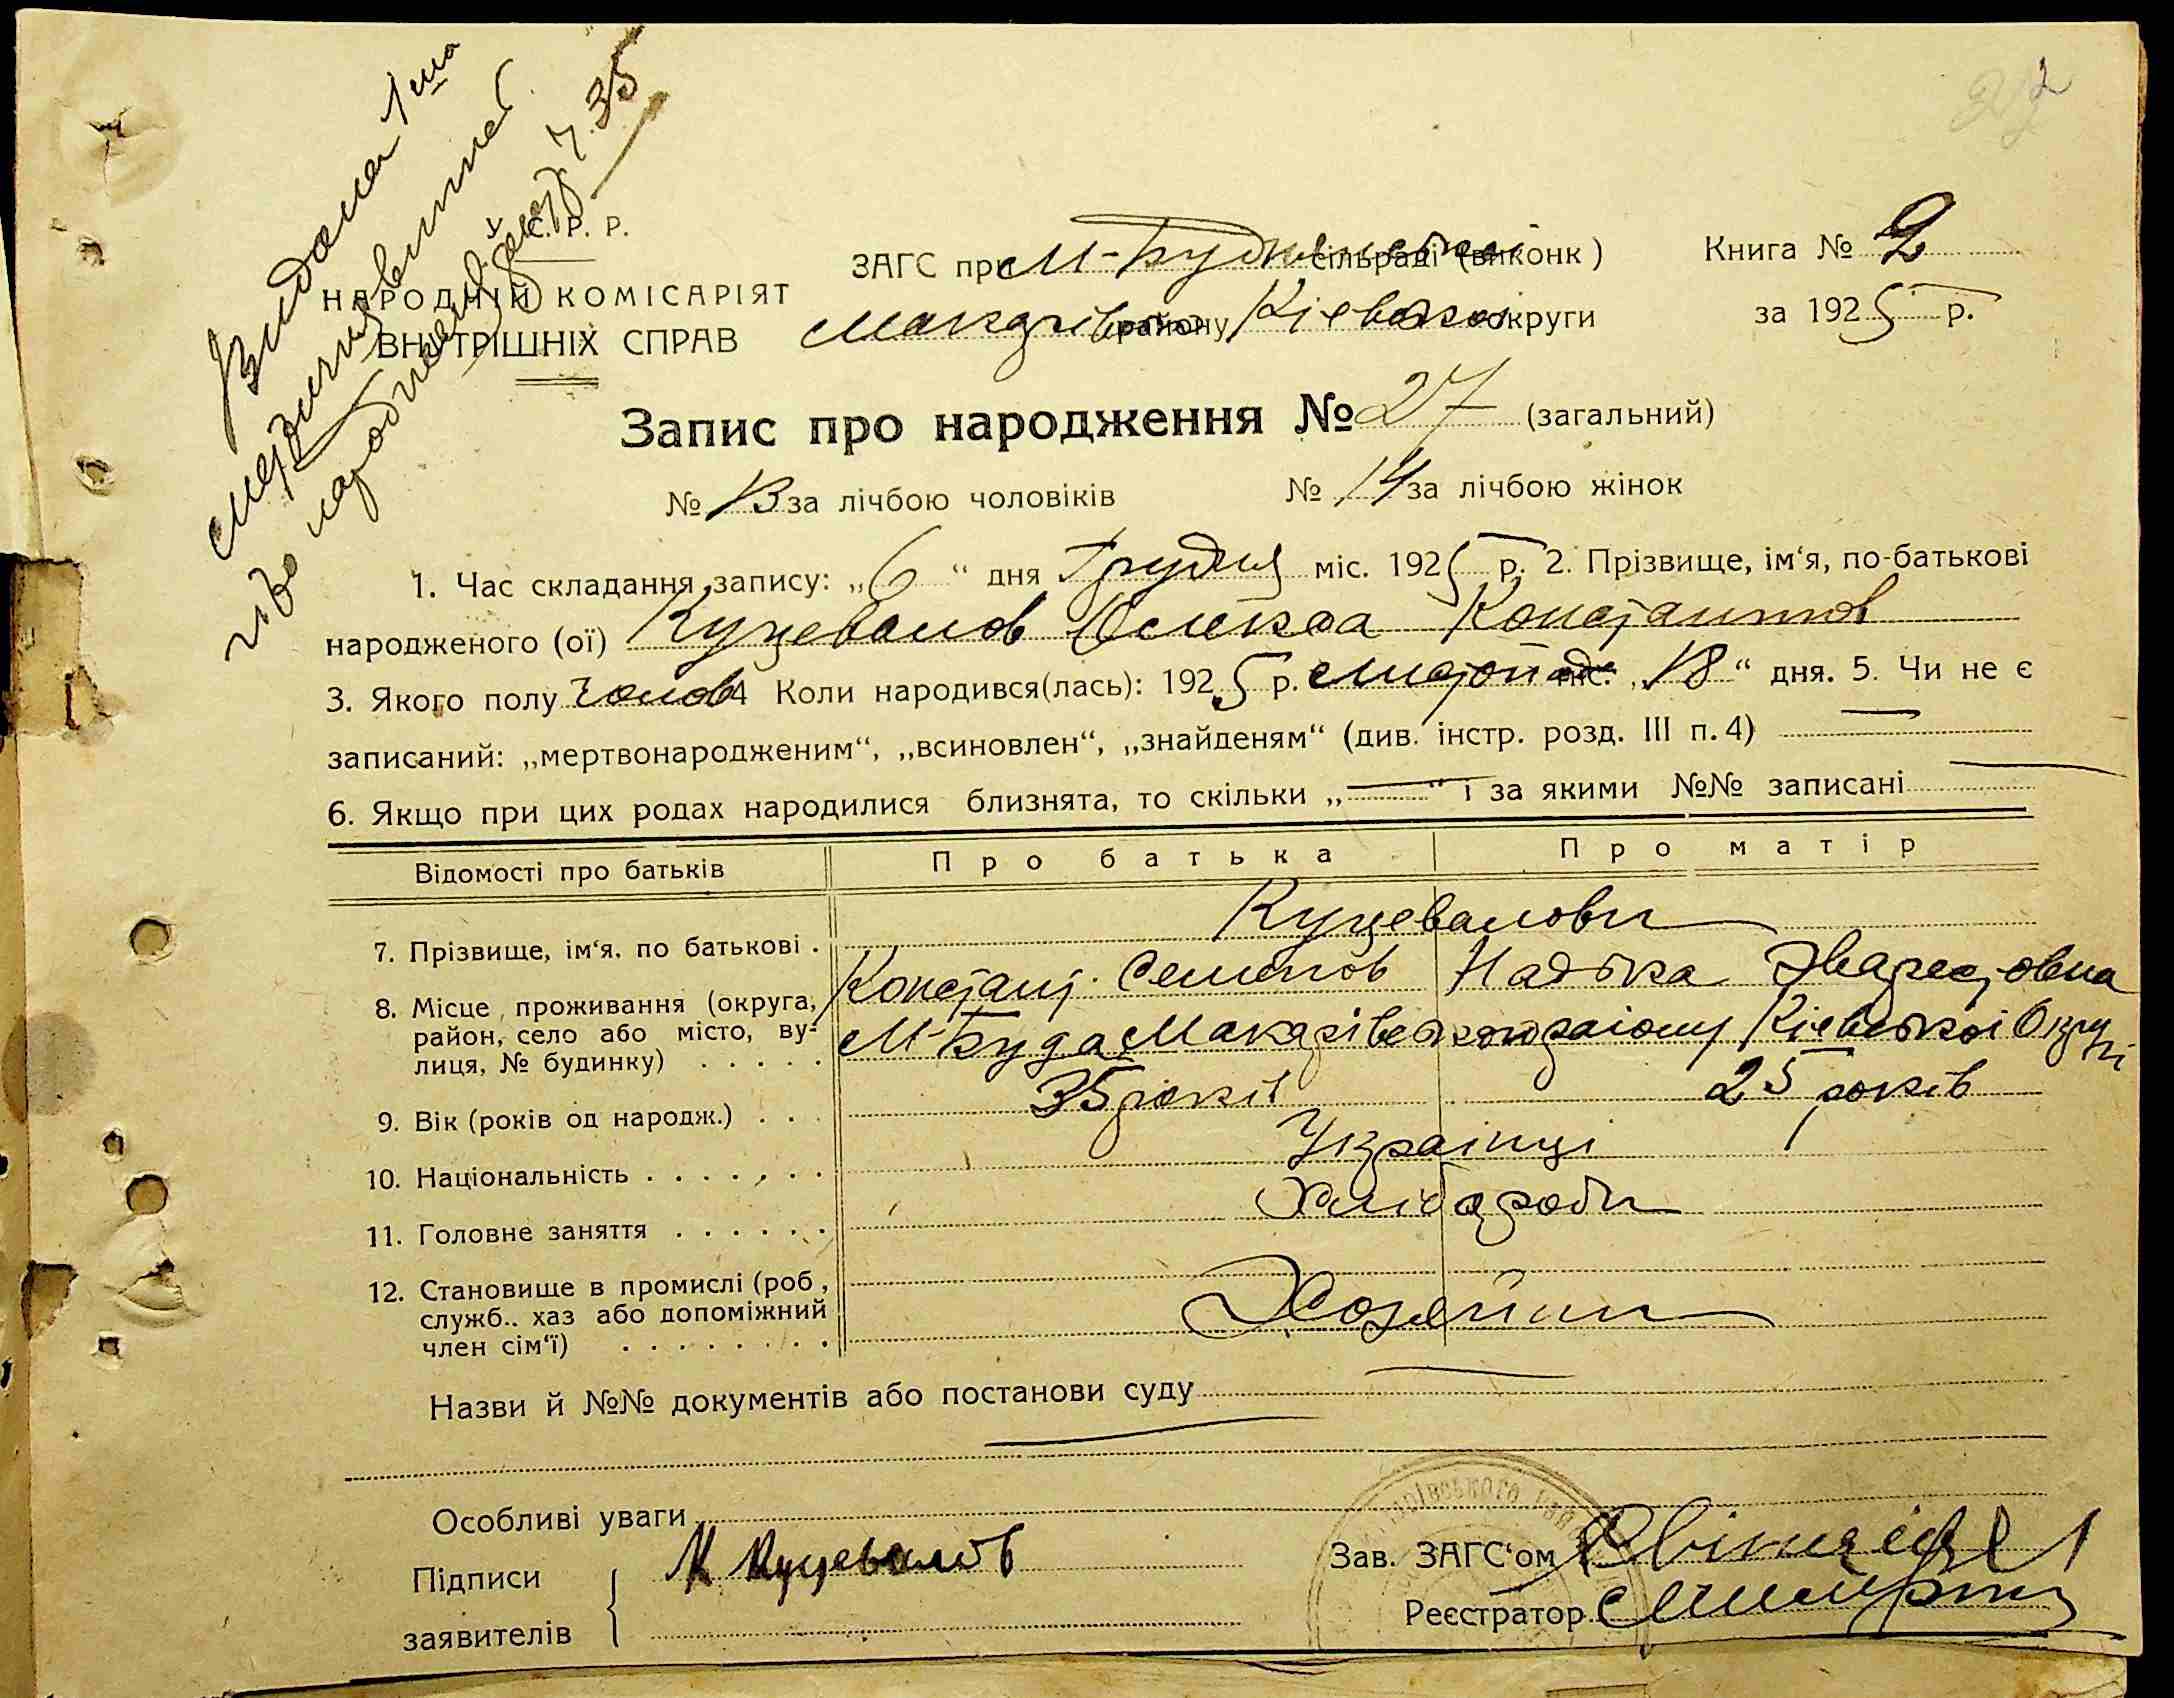 Видана 1ша
метрична витяг
про народження 7.35
2
У. С. Р. Р.
НАРОДНІЙ КОМІСАРІЯТ
ВНУТРІШНІХ СПРАВ
ЗАГС при М-Буднянській сільраді (виконк)
Макарівсько району Київсько округи
Книга № 2
за 1925 р.
Запис про народження № 27 (загальний)
№ 13 за лічбою чоловіків № 14 за лічбою жінок
1. Час складання запису: „6“ дня Грудня міс. 1925 р. 2. Прізвище, ім‘я, по-батькові
народженого (ої) Куцевалов Олекса Константинов
3. Якого полу Чолов 4 Коли народився(лась): 1925 р. Листопаде міс. „18“ дня. 5. Чи не є
записаний: „мертвонародженим“, „всиновлен“, „знайденям“ (див. інстр. розд. III п. 4) —
6. Якщо при цих родах народилися близнята, то скільки „—“ і за якими №№ записані —
Відомості про батьків Про батька Про матір
7. Прізвище, ім‘я, по батькові . Куцевалови
Констант. Семенов Надька Еварестовна
8. Місце проживання (округа,
район, село або місто, ву-
лиця, № будинку) . . . . . М-Буда Макарівського району Київської Округи
9. Вік (років од народж.) . . . 35 років 25 років
10. Національність . . . . . . . Українці
11. Головне заняття . . . . . . Хлібароби
12. Становище в промислі (роб,
служб.. хаз або допоміжний
член сім‘ї) . . . . . . . . Хозяїни
Назви й №№ документів або постанови суду —
Особливі уваги
Підписи
заявителів
К Куцевалов
Зав. ЗАГС‘ом
Реєстратор